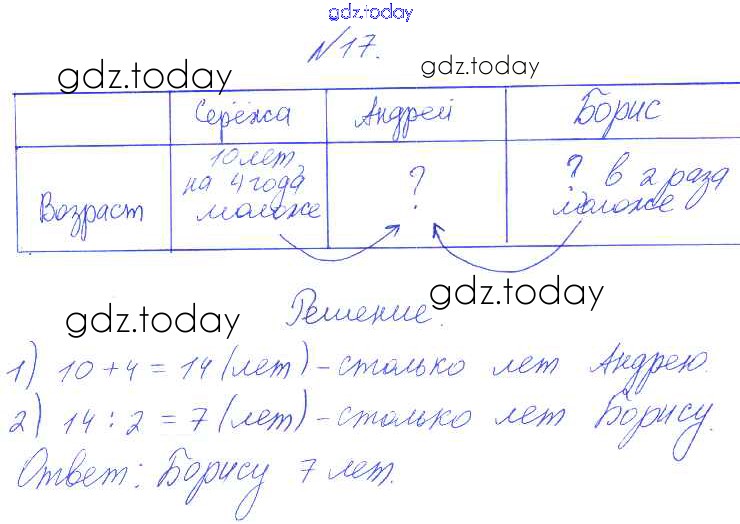 gdz.today
№17.
gdz.today gdz.today
Серёжа Андрей Борис
Возраст 10 лет, на 4 года моложе ? ? в 2 раза моложе
gdz.today gdz.today
Решение.
1) 10 + 4 = 14 (лет) - столько лет Андрею.
2) 14 : 2 = 7 (лет) - столько лет Борису.
Ответ: Борису 7 лет.